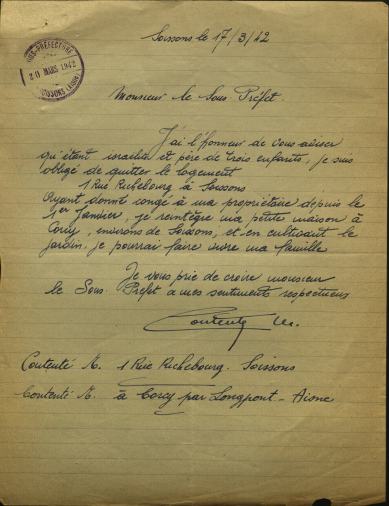 Soissons le 17/3/42
SOUS-PRÉFECTURE
20 MARS 1942
SOISSONS (AISNE)
Monsieur le Sous-Préfet.
J'ai l'honneur de vous aviser
qu'étant israelite et père de trois enfants, je suis
obligé de quitter le logement
1 Rue Richebourg à Soissons
Ayant donné congé à ma propriétaire depuis le
1er Janvier, je reintègre ma petite maison à
Corcy, environs de Soissons, et en cultivant le
jardin, je pourrai faire vivre ma famille
Je vous prie de croire monsieur
le Sous-Préfet a mes sentiments respectueux
Contenté M.
Contenté M. 1 Rue Richebourg. Soissons
Contenté M. à Corcy par Longpont - Aisne